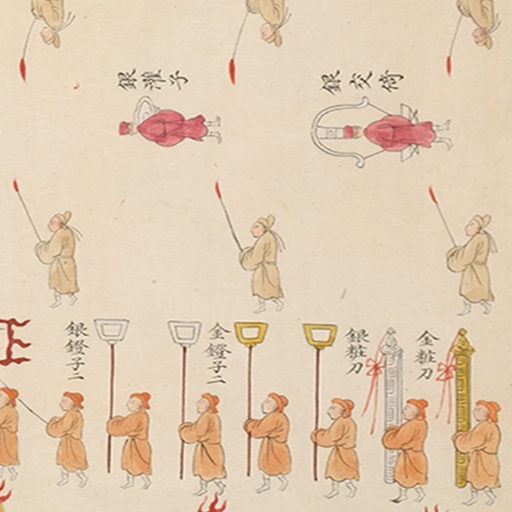 銀灌子
銀交倚
銀鐙子二
金鐙子二
銀粧刀
金粧刀